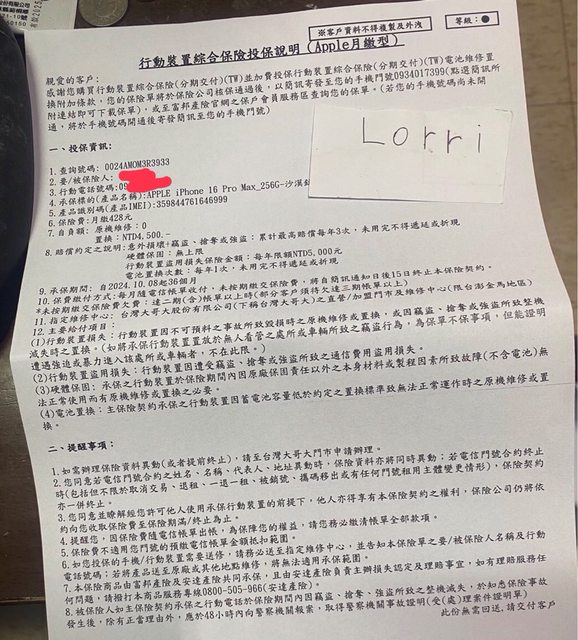 ※客戶資料不得複製及外洩
等級：●
行動裝置綜合保險投保說明 (Apple月繳型)
Lorri
親愛的客戶：
感謝您購買行動裝置綜合保險(分期交付)(TW)並加費投保行動裝置綜合保險(分期交付)(TW)電池維修置
換附加條款，您的保單將於保險公司核保通過後，以簡訊寄發至您的手機門號0934017399(點選簡訊所
附連結即可下載保單)，或至富邦產險官網之保戶會員服務區查詢您的保單。(若您的手機號碼尚未開
通，將於手機號碼開通後寄發簡訊至您的手機門號)
一、投保資訊：
1.查詢號碼: 0024AMOM3R3933
2.要/被保險人:
3.行動電話號碼:09
4.承保標的(產品名稱):APPLE iPhone 16 Pro Max_256G-沙漠
5.產品識別碼(產品IMEI):359844761646999
6.保險費:月繳428元
7.自負額: 原機維修:0
置換:NTD4,500.-
8.賠償約定之說明:意外損壞+竊盜、搶奪或強盜:累計最高賠償每年3次，未用完不得遞延或折現
硬體保固:無上限
行動裝置盜用損失保險金額:每年限額NTD5,000元
電池置換次數:每年1次，未用完不得遞延或折現
9.承保期間: 自2024.10.08起36個月
10.保費繳付方式:每月隨電信帳單收付，未按期繳交保險費，將自簡訊通知日後15日終止本保險契約。
*未按期繳交保險費欠費:達二期(含)帳單以上時(部分客戶須得欠達三期帳單以上)
11.指定維修中心: 台灣大哥大股份有限公司(下稱台灣大哥大)之直營/加盟門市及維修中心(限台澎金馬地區)
12.主要給付項目：
(1)行動裝置損失:行動裝置因不可預料之事故所致毀損時之原機維修或置換，或因竊盜、搶奪或強盜所致整機
滅失時之置換。(如將承保行動裝置置放於無人看管之處所或車輛所致之竊盜行為，為保單不保事項，但能證明
遭遇強迫或暴力進入該處所或車輛者，不在此限。)
(2)行動裝置盜用損失:行動裝置因遭受竊盜、搶奪或強盜所致之通信費用盜用損失。
(3)硬體保固: 承保之行動裝置於保險期間內因原廠保固責任以外之本身材料或製程因素所致故障(不含電池)無
法正常使用而有原機維修或置換之必要。
(4)電池置換:主保險契約承保之行動裝置因蓄電池容量低於約定之置換標準致無法正常運作時之原機維修或置
換。
二、提醒事項：
1.如需辦理保險資料異動(或者提前終止)，請至台灣大哥大門市申請辦理。
2.您同意若電信門號合約之姓名、名稱、代表人、地址異動時，保險資料亦將同時異動；若電信門號合約終止
時(包括但不限於取消交易、退租、一退一租、被銷號、攜碼移出或有任何門號租用主體變更情形)，保險契約
亦一併終止。
3.您同意並瞭解經您許可他人使用承保行動裝置的前提下，他人亦得享有本保險契約之權利，保險公司仍將依
約向您收取保險費至保險期滿/終止為止。
4.提醒您，因保險費隨電信帳單出帳，為保障您的權益，請您務必繳清帳單全部款項。
5.保險費不適用您門號的預繳電信帳單金額抵扣範圍。
6.如您投保的手機/行動裝置需要送修，請務必送至指定維修中心，並告知本保險單之要/被保險人名稱及行動
電話號碼；若將產品送至原廠或其他地點維修，將無法適用承保範圍。
7.本保險商品由富邦產險及安達產險共同承保，且由安達產險負責主辦損失認定及理賠事宜，如有理賠服務任
何問題，請撥打本商品服務專線0800-505-966(安達產險)。
8.被保險人如主保險契約承保之行動電話於保險期間內因竊盜、搶奪、強盜所致之整機滅失，於知悉保險事故
發生後，除有正當理由外，應於48小時內向警察機關報案，取得警察機關事故證明(受(處)理案件證明單)
此份無需回送，請交付客戶